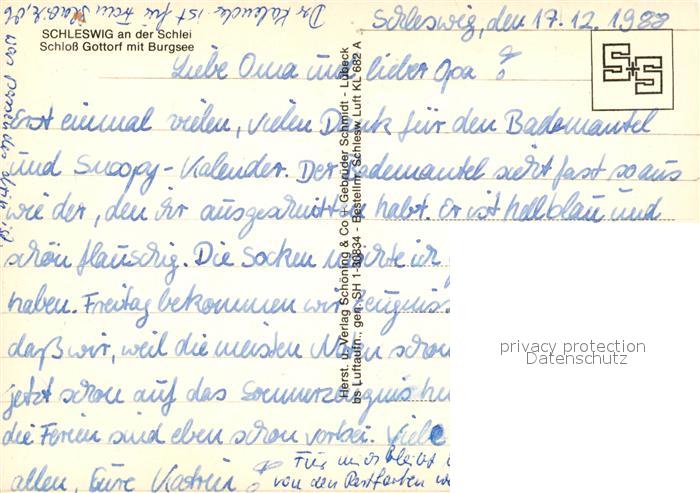 Der Kalender ist für
SCHLESWIG an der Schlei
Schloß Gottorf mit Burgsee
Schleswig, den 17.12.1988
Liebe Oma und lieber Opa!
Erst einmal vielen, vielen Dank für den Bademantel
und Snoopy-Kalender. Der Bademantel sieht fast so aus
wie der, den ihr ausgeschnitten habt. Er ist hellblau und
schön flauschig. Die Socken möchte ich
haben. Freitag bekommen wir Zeugnisse
daß wir, weil die meisten Noten schon
jetzt schon auf das Sommerzeugnis
die Ferien sind eben schon vorbei. Viele
allen, Eure Katrin
Für mich bleibt
von den Postkarten
Herst. u. Verlag Schöning & Co + Gebrüder Schmidt - Lübeck
SH 1-30834 - Bestellnr. Schlesw Luft KL 682 A
Luftaufn. gen.
privacy protection
Datenschutz